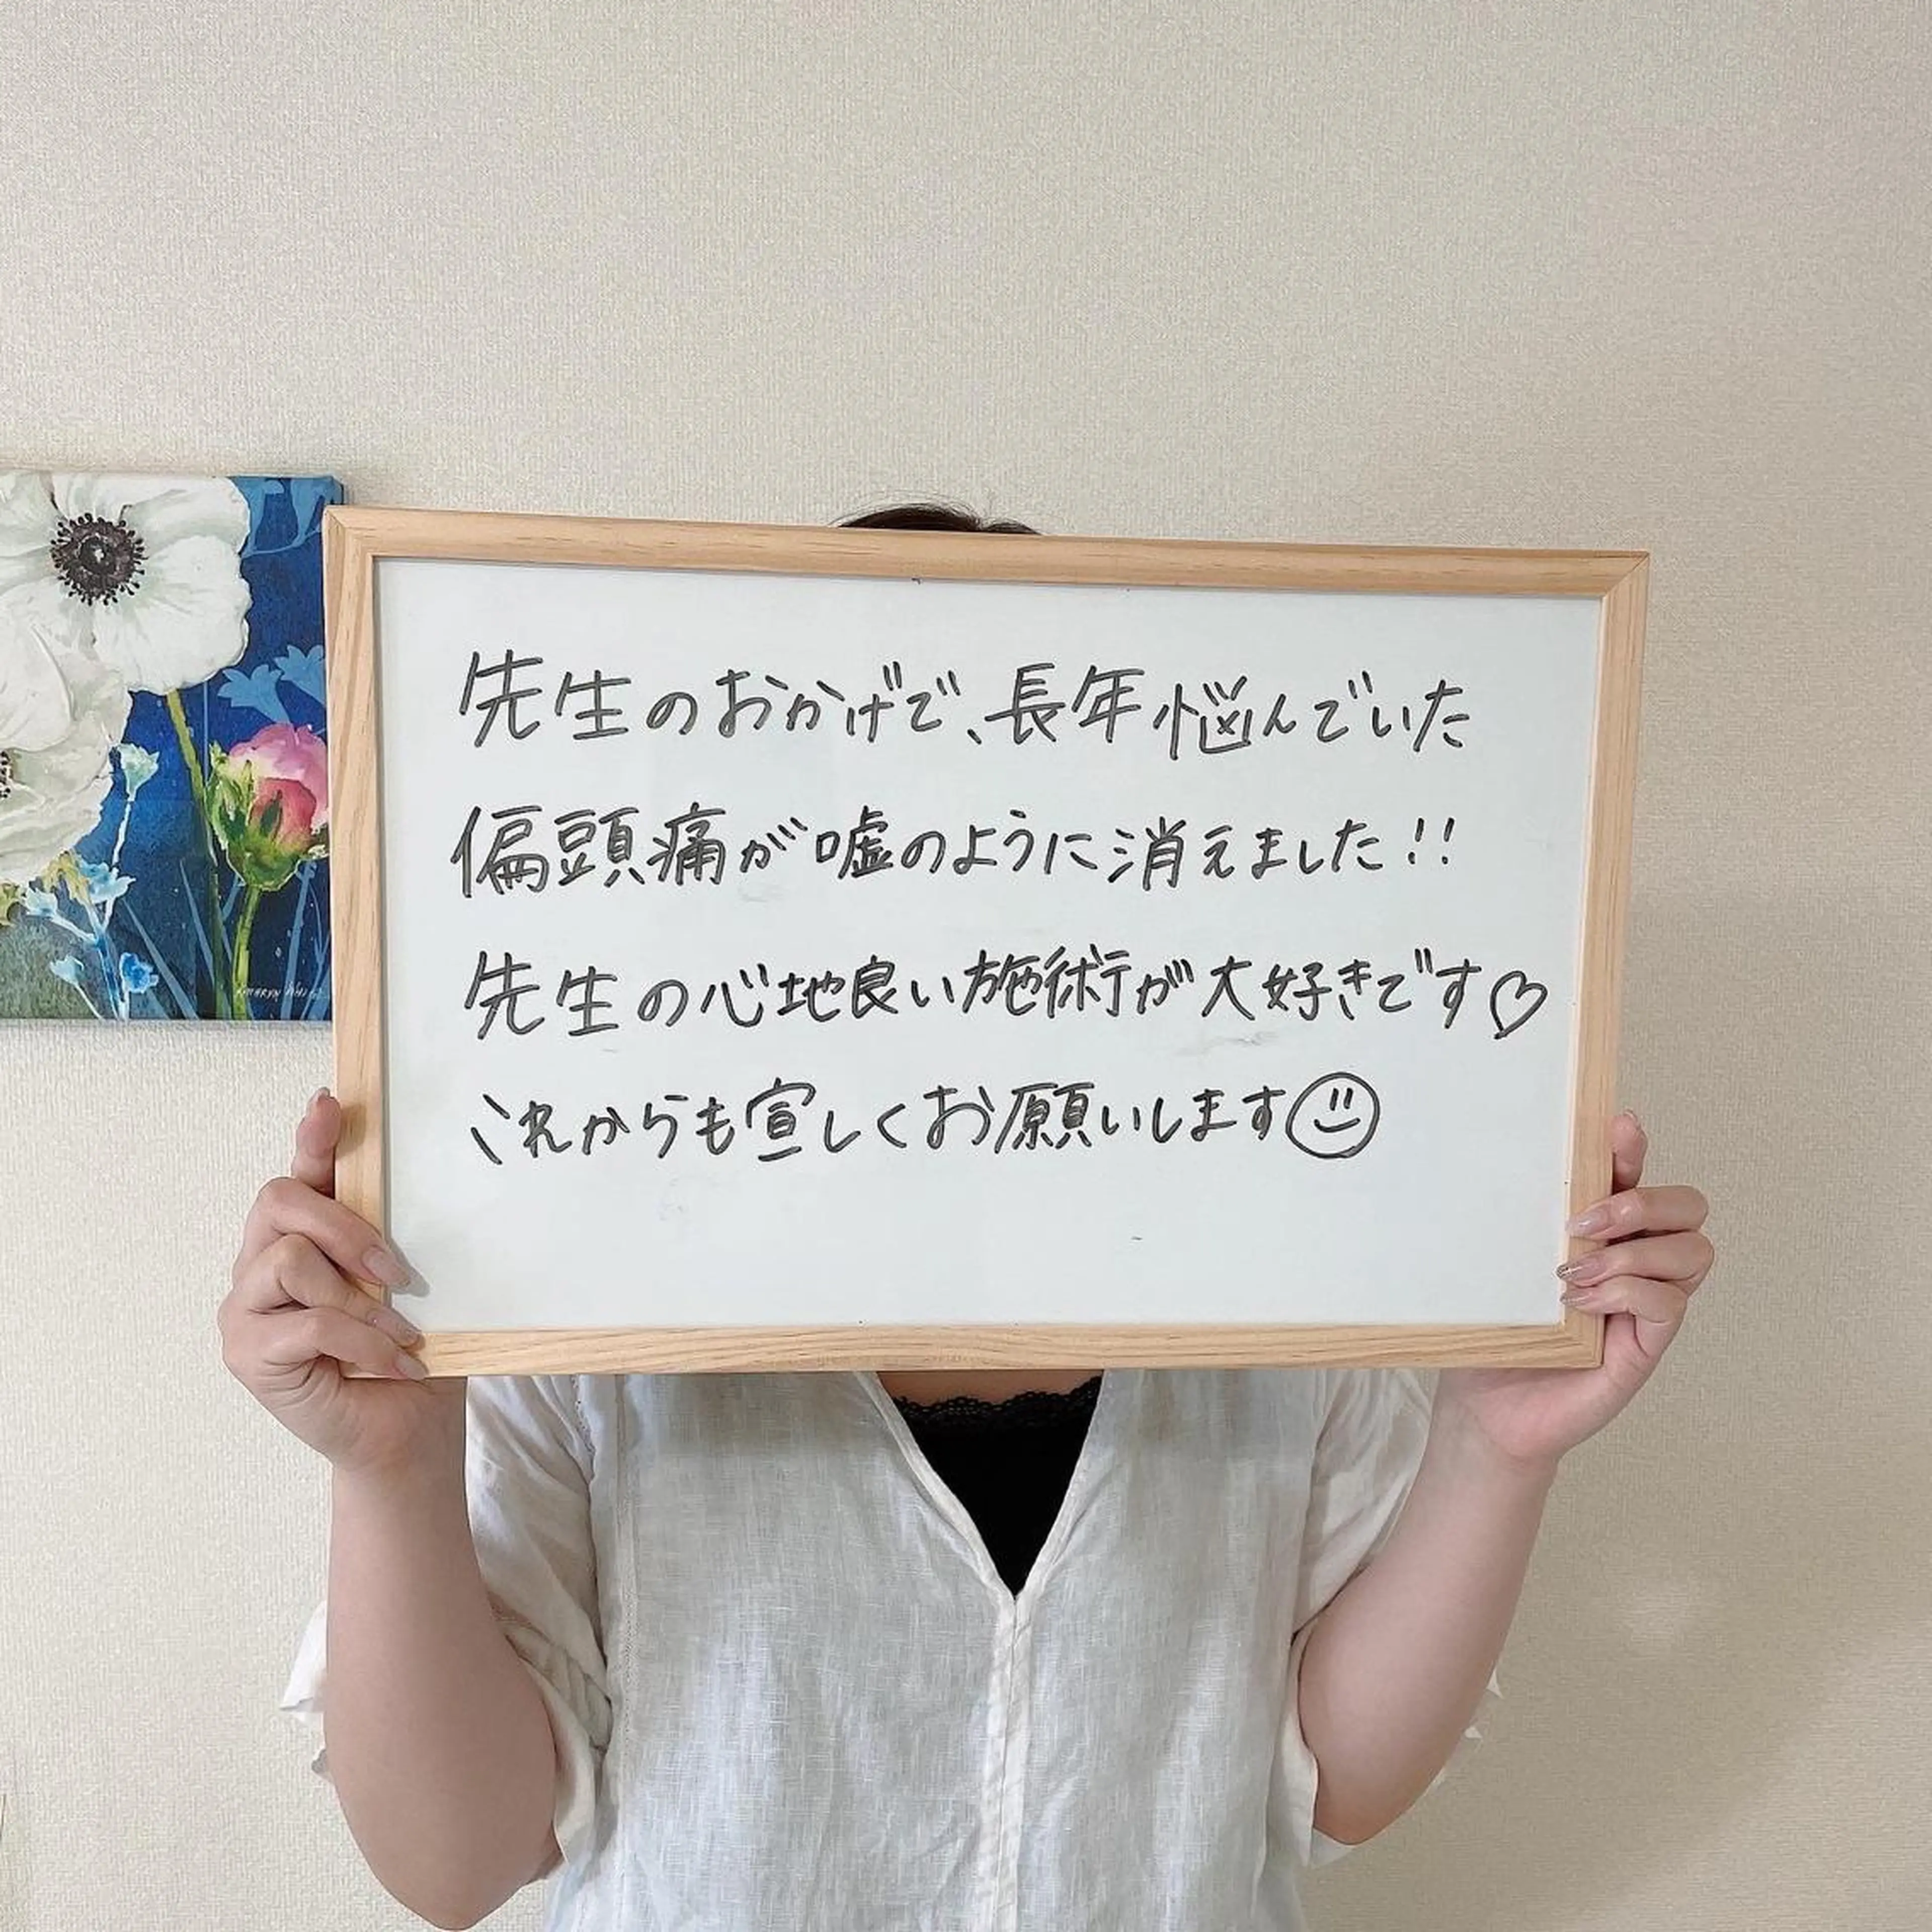 先生のおかげで、長年悩んでいた
偏頭痛が嘘のように消えました!!
先生の心地良い施術が大好きです♡
これからも宜しくお願いします☺